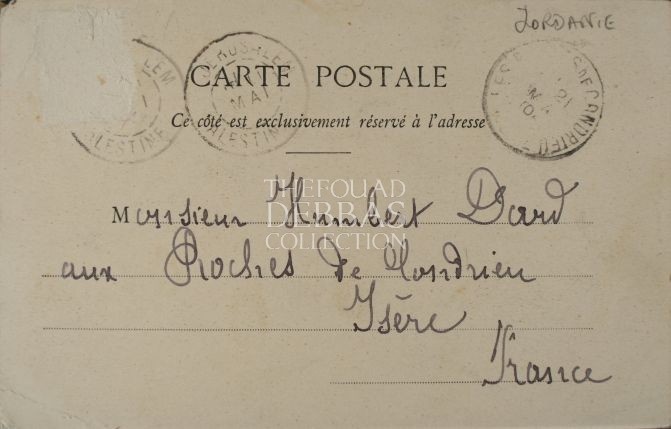 JORDANIE
JERUSALEM
MAI
PALESTINE
CARTE POSTALE
Ce côté est exclusivement réservé à l'adresse
THE FOUAD
DEBBAS
COLLECTION
Monsieur Humbert Dard
aux Roches de Condrieu
Isère
France